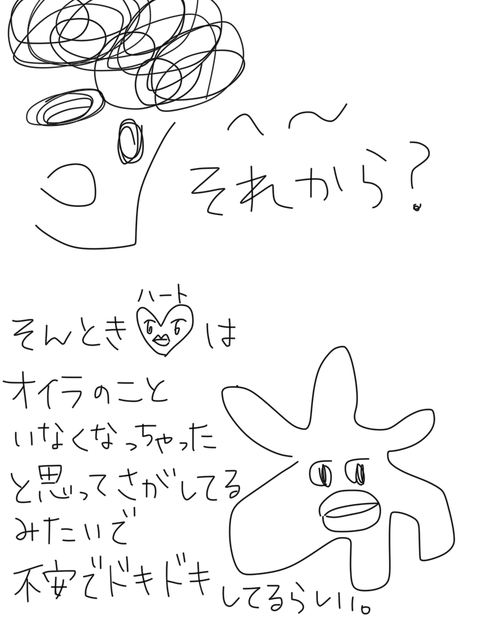 へ〜
それから?
ハート
そんとき は
オイラのこと
いなくなっちゃった
と思ってさがしてる
みたいで
不安でドキドキしてるらしい。